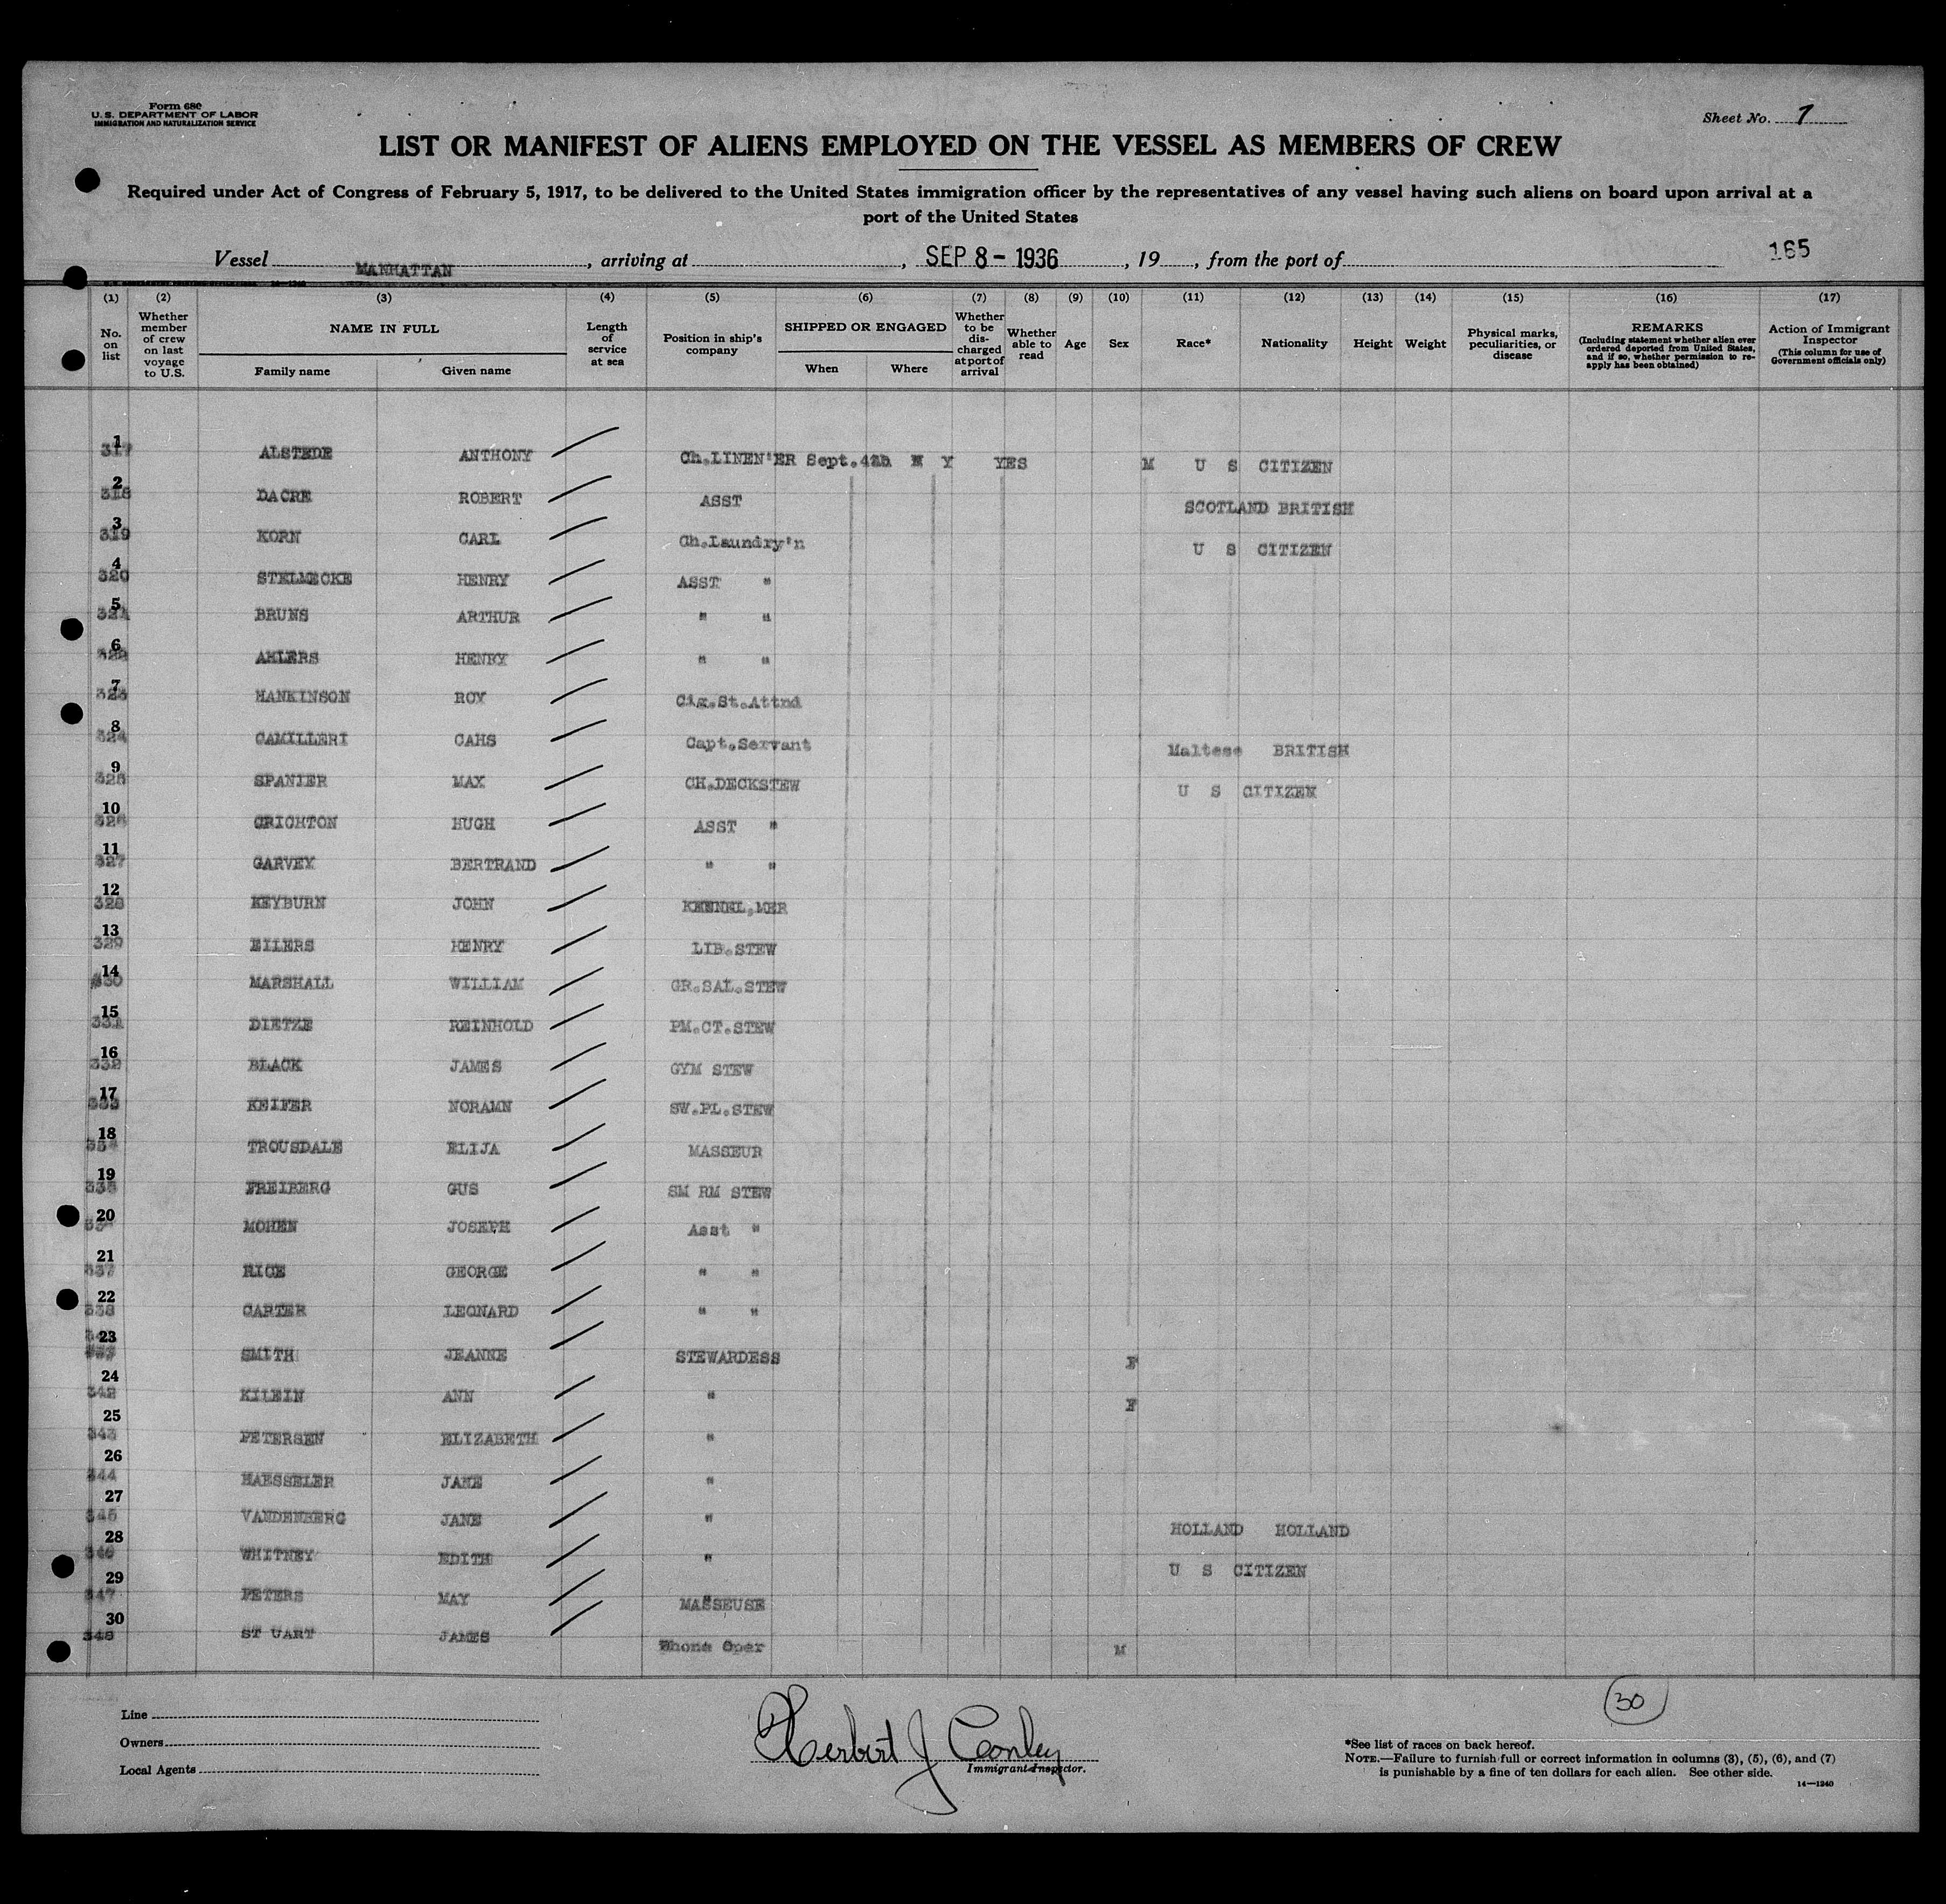 Form 680
U. S. DEPARTMENT OF LABOR
IMMIGRATION AND NATURALIZATION SERVICE
Sheet No. 7
LIST OR MANIFEST OF ALIENS EMPLOYED ON THE VESSEL AS MEMBERS OF CREW
Required under Act of Congress of February 5, 1917, to be delivered to the United States immigration officer by the representatives of any vessel having such aliens on board upon arrival at a
port of the United States
Vessel MANHATTAN, arriving at , SEP 8 - 1936, 19 , from the port of 165
(1) (2) (3) (4) (5) (6) (7) (8) (9) (10) (11) (12) (13) (14) (15) (16) (17)
No. on list
Whether member of crew on last voyage to U.S.
NAME IN FULL
Family name
Given name
Length of service at sea
Position in ship's company
SHIPPED OR ENGAGED
When
Where
Whether to be discharged at port of arrival
Whether able to read
Age
Sex
Race*
Nationality
Height
Weight
Physical marks, peculiarities, or disease
REMARKS
(Including statement whether alien ever ordered deported from United States, and if so, whether permission to reapply has been obtained)
Action of Immigrant Inspector
(This column for use of Government officials only)
1 317 ALSTEDE ANTHONY Ch.LINEN'ER Sept. N Y YES M U S CITIZEN
2 318 DACRE ROBERT ASST SCOTLAND BRITISH
3 319 KORN CARL Ch.Laundry'n U S CITIZEN
4 320 STELMECKE HENRY ASST "
5 321 BRUNS ARTHUR " "
6 322 AHLERS HENRY " "
7 323 HANKINSON ROY Cig.St.Attnd
8 324 CAMILLERI CAHS Capt.Servant Maltese BRITISH
9 325 SPANIER MAX CH.DECKSTEW U S CITIZEN
10 326 CRICHTON HUGH ASST "
11 327 GARVEY BERTRAND " "
12 328 KEYBURN JOHN KENNEL,MER
13 329 EILERS HENRY LIB.STEW
14 330 MARSHALL WILLIAM GR.SAL.STEW
15 331 DIETZE REINHOLD PM.CT.STEW
16 332 BLACK JAMES GYM STEW
17 333 KEIFER NORAMN SW.PL.STEW
18 334 TROUSDALE ELIJA MASSEUR
19 335 FREIBERG GUS SM RM STEW
20 MOHEN JOSEPH Asst "
21 337 RICE GEORGE " "
22 338 CARTER LEONARD " "
23 SMITH JEANNE STEWARDESS F
24 342 KILEIN ANN " F
25 343 PETERSEN ELIZABETH "
26 344 HAESSELER JANE "
27 345 VANDENBERG JANE " HOLLAND HOLLAND
28 346 WHITNEY EDITH " U S CITIZEN
29 347 PETERS MAY MASSEUSE
30 348 ST UART JAMES Phone Oper M
30
Line
Owners
Local Agents
Herbert J Conley
Immigrant Inspector.
*See list of races on back hereof.
NOTE.—Failure to furnish full or correct information in columns (3), (5), (6), and (7)
is punishable by a fine of ten dollars for each alien. See other side.
14—1240